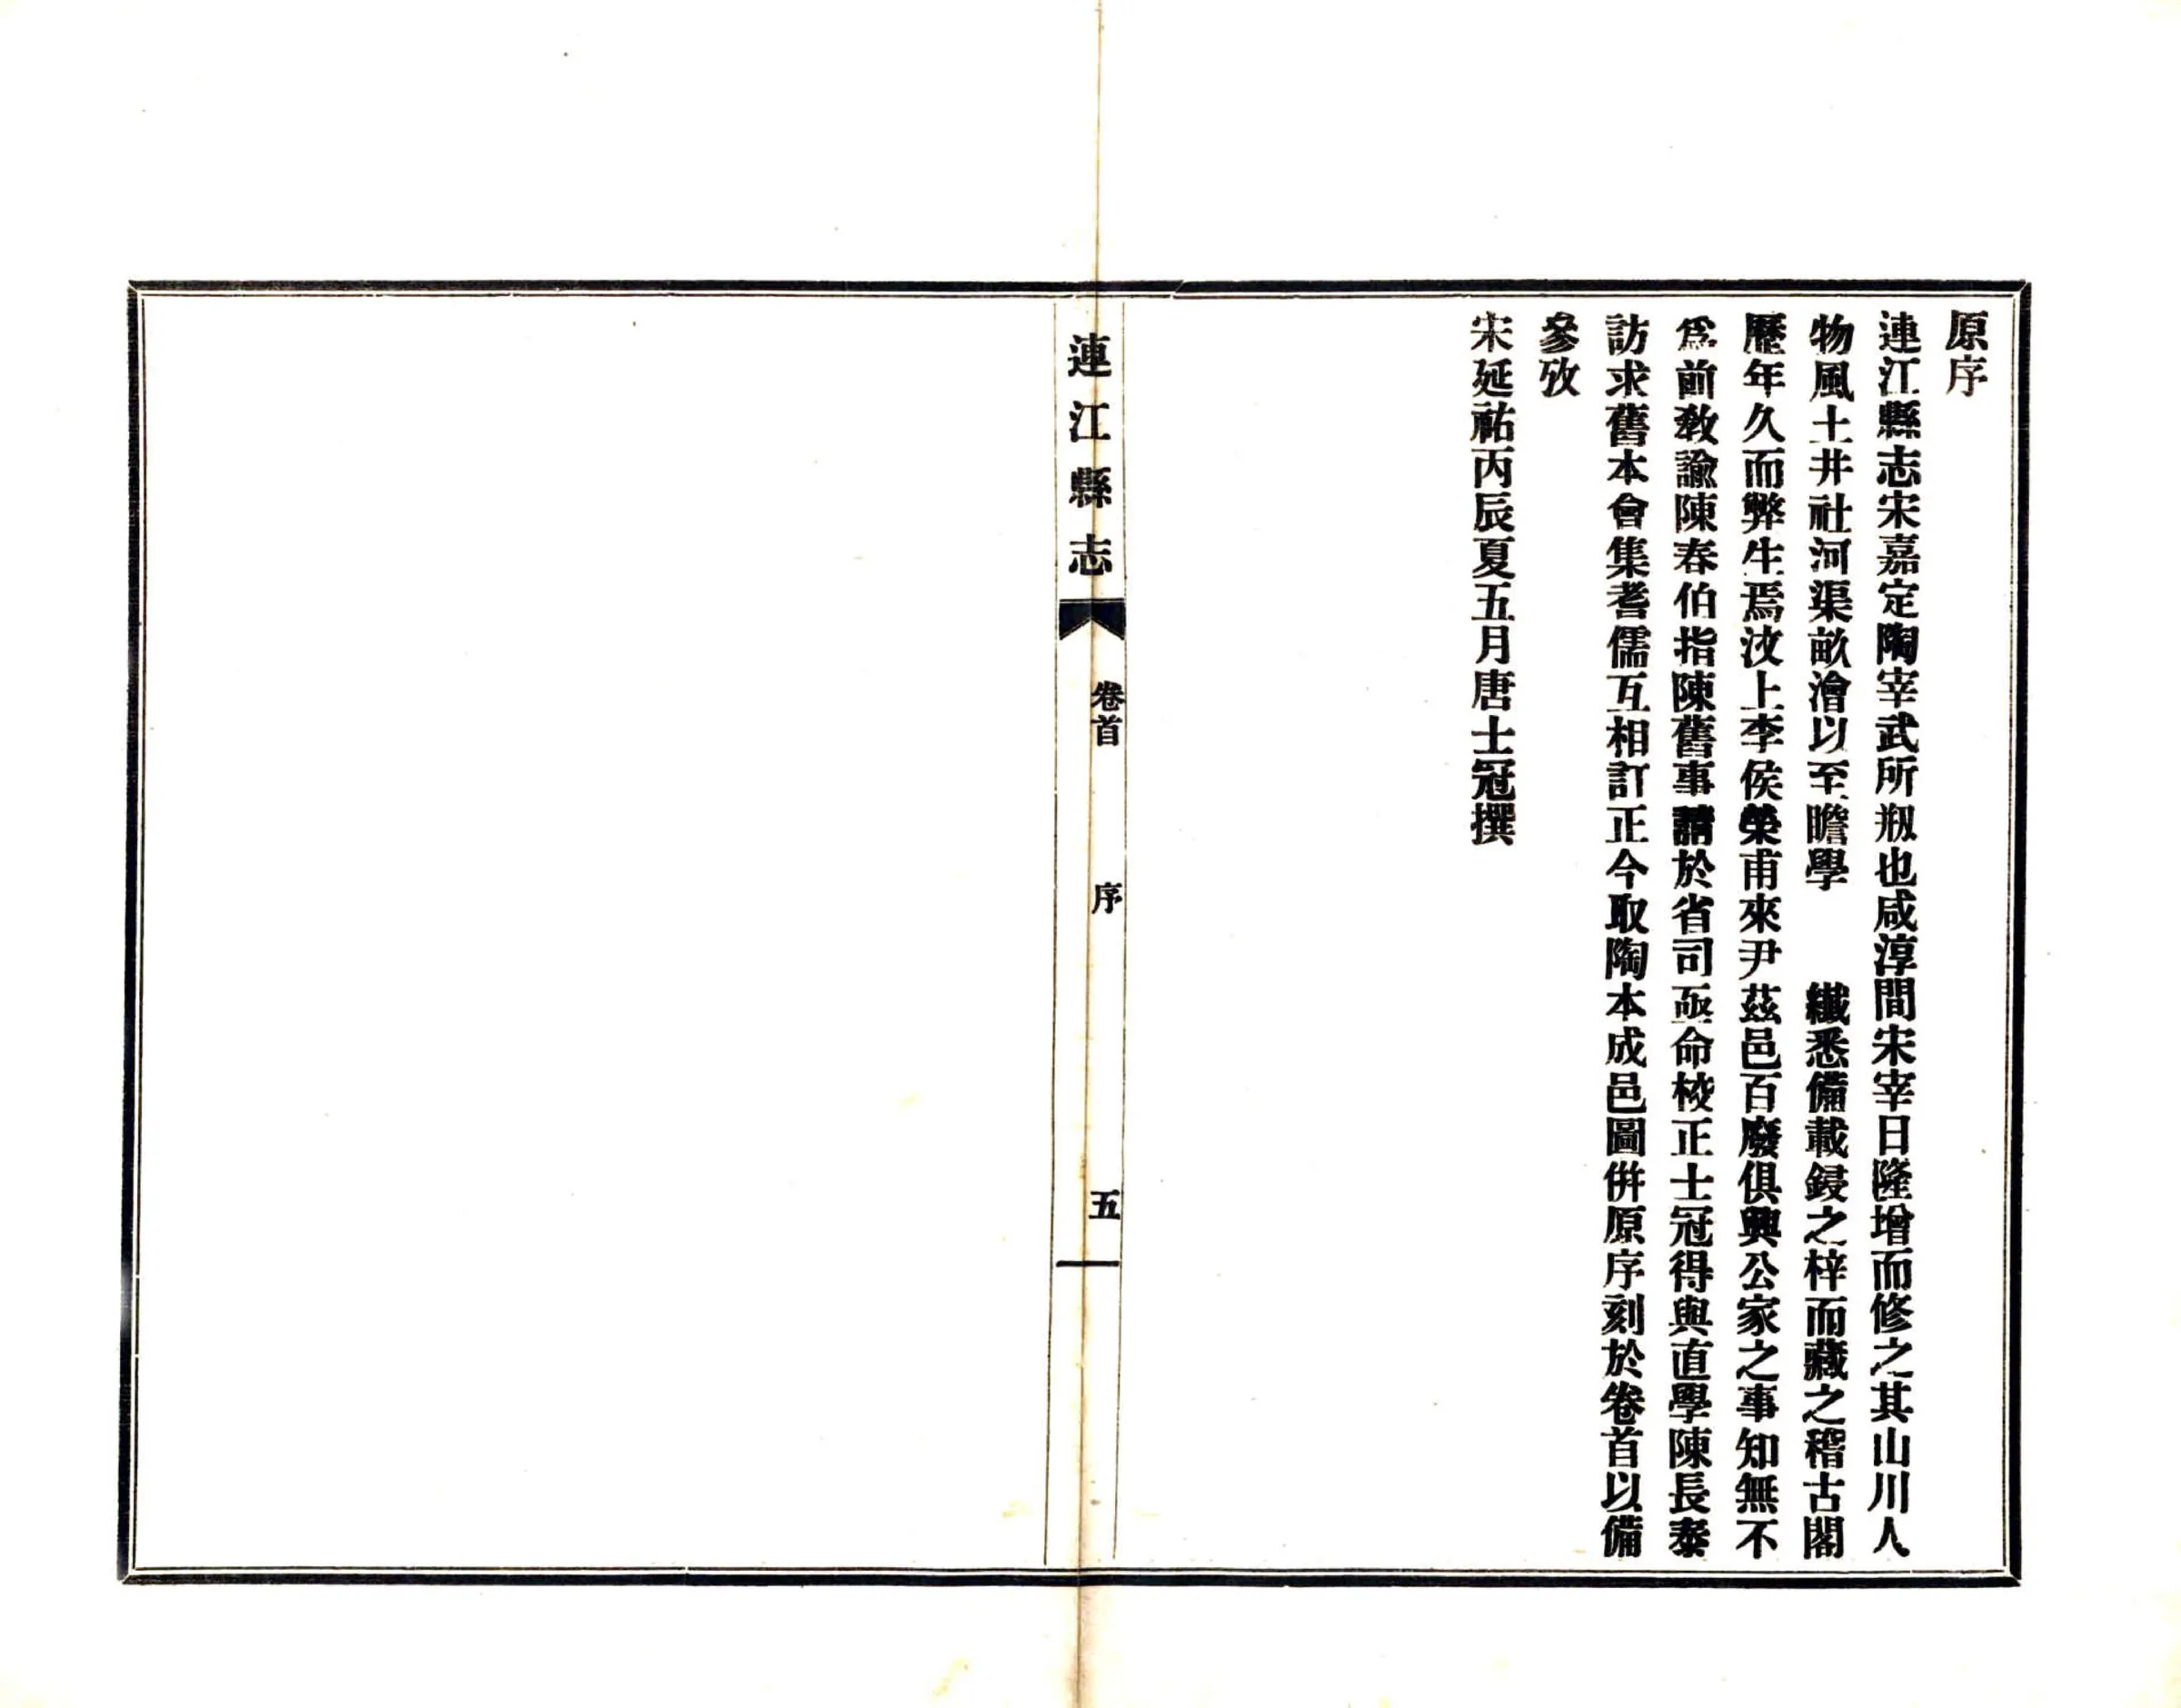 原序
連江縣志宋嘉定陶宰武所刱也咸淳間宋宰日隆增而修之其山川人
物風土井社河渠畝澮以至瞻學　　纖悉備載鋟之梓而藏之稽古閣
歷年久而弊生焉汶上李侯榮甫來尹茲邑百廢俱興公家之事知無不
爲前敎諭陳春伯指陳舊事請於省司亟命校正士冠得與直學陳長泰
訪求舊本會集耆儒互相訂正今取陶本成邑圖併原序刻於卷首以備
參攷
宋延祐丙辰夏五月唐士冠撰
連江縣志
卷首
序
五